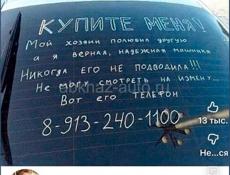 КУПИТЕ МЕНЯ!
Мой хозяин полюбил другую
а я верная, надежная машинка
Никогда его не подводила!!!
Не могу смотреть на измен...
Вот его телефон
8-913-240-1100
abkhaz-auto.ru
13 тыс.
Не...ся